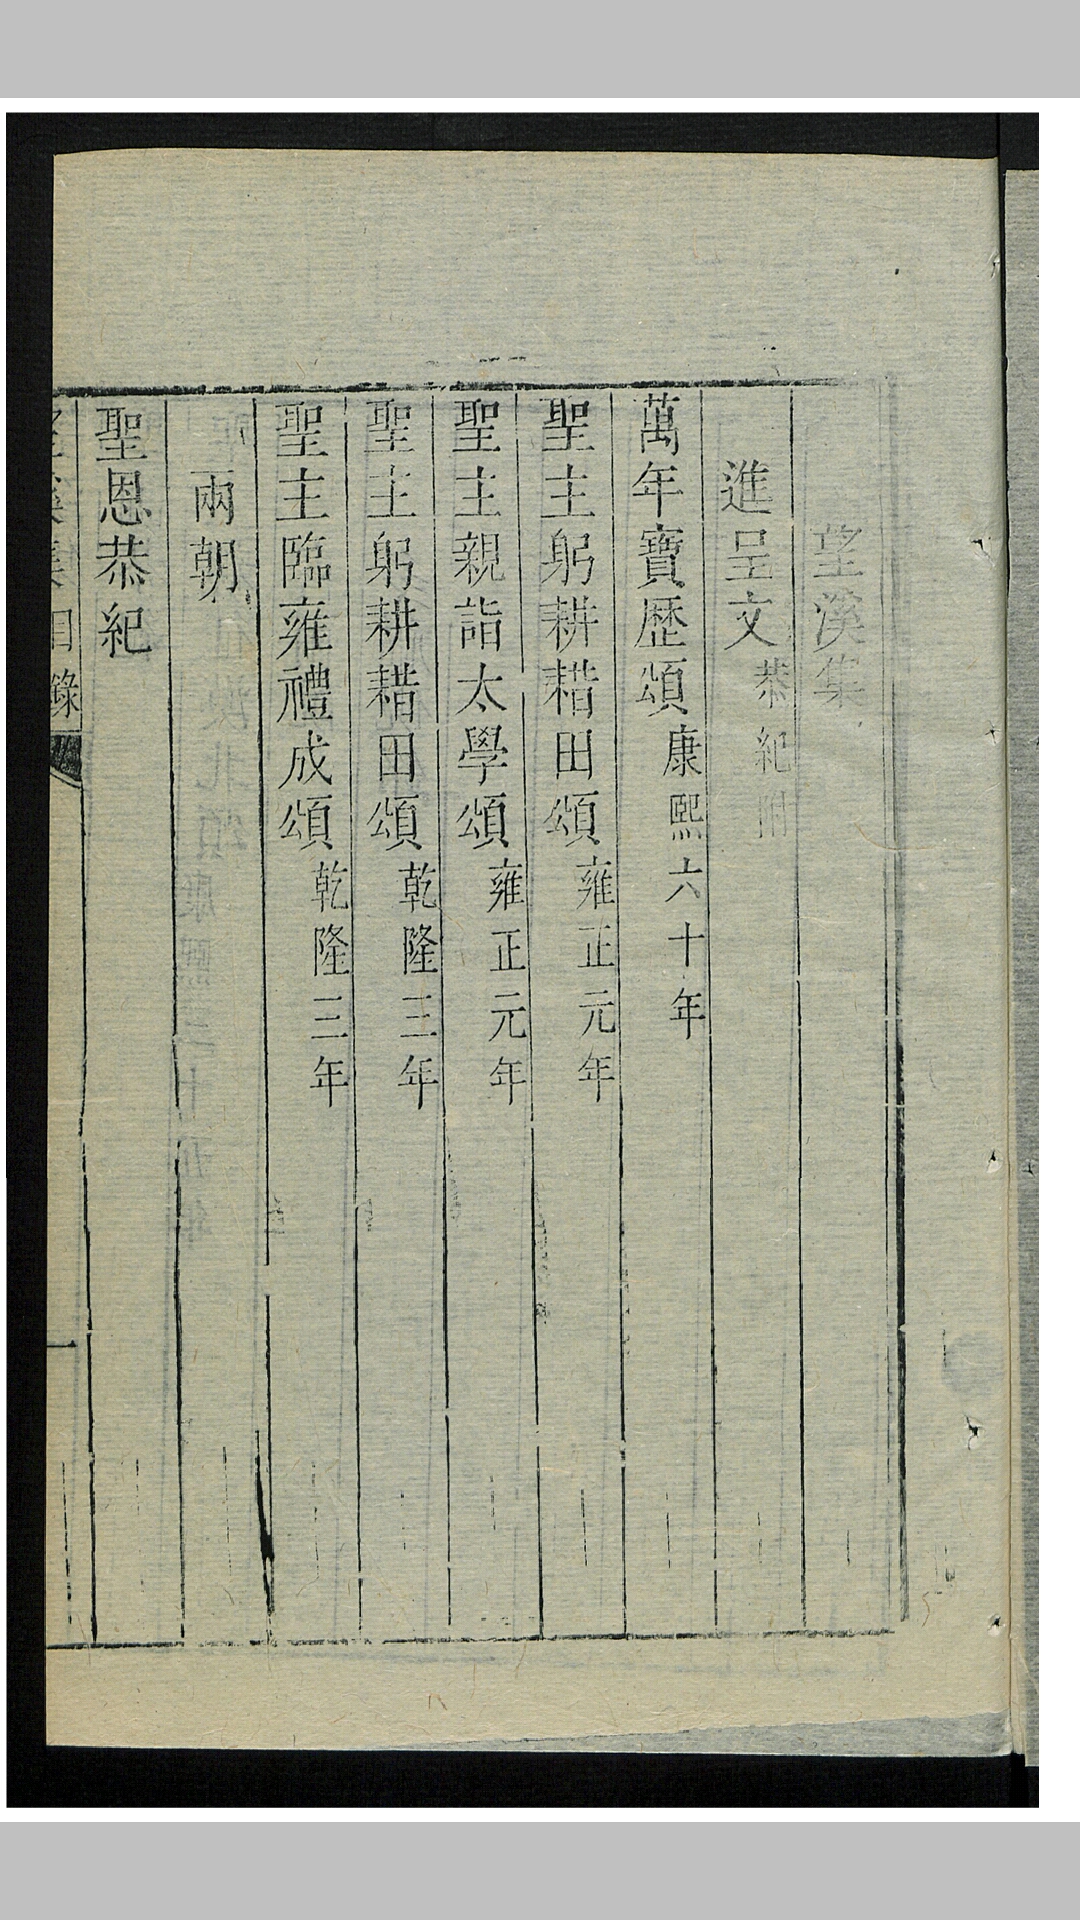 望溪集
進呈文恭紀附
萬年寶歷頌康熙六十年
聖主躬耕耤田頌雍正元年
聖主親詣太學頌雍正元年
聖主躬耕耤田頌乾隆三年
聖主臨雍禮成頌乾隆三年
兩朝
聖恩恭紀
望溪集目錄
一